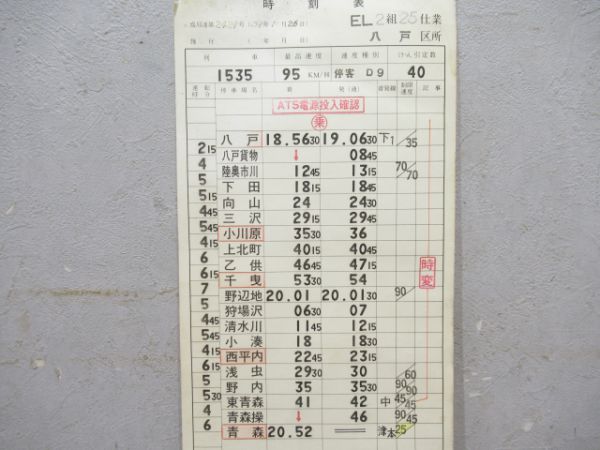 時刻表
EL2組25仕業
八戸区所
列車 最高速度 速度種別 けん引定数
1535 95 KM/H 停客 D9 40
運転時分 停車場名 着 発(通) 着発線 制限速度 記事
ATS電源投入確認
乗
八戸 18.56 30 19.06 30 下1 35
2 15 八戸貨物 ↓ 08 45
4 陸奥市川 12 45 13 15 70 70
5 下田 18 15 18 45
5 15 向山 24 24 30
4 45 三沢 29 15 29 45
5 45 小川原 35 30 36
4 15 上北町 40 15 40 45
6 乙供 46 45 47 15
6 15 千曳 53 30 54 時変
7 野辺地 20.01 20.01 30 90
5 狩場沢 06 30 07
4 45 清水川 11 45 12 15
5 45 小湊 18 18 30
4 15 西平内 22 45 23 15
6 15 浅虫 29 30 30 60
5 野内 35 35 30 90 90
5 30 東青森 41 42 中 45 45
4 青森操 ↓ 46 90 45
6 青森 20.52 津本 25